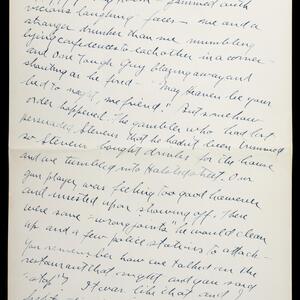 vicious laughing faces — me and a
stranger drunker than me mumbling
lying confidences to each other in a corner —
and one tough guy blazing away and
shouting as he fired — "May Heaven be your
bed to night, me friend." But somehow
order happened. The gambler who had lost
persuaded Stevens that he hadn't been trimmed
so Stevens bought drinks for the house
and we tumbled into Halsted street. Our
gun player was feeling too good however
and insisted upon showing off. There
were some "wrong joints" he would clean
up and a few police stations to attack —
You remember how we talked in the
restaurant that night and you said
"stop"? It was like that and